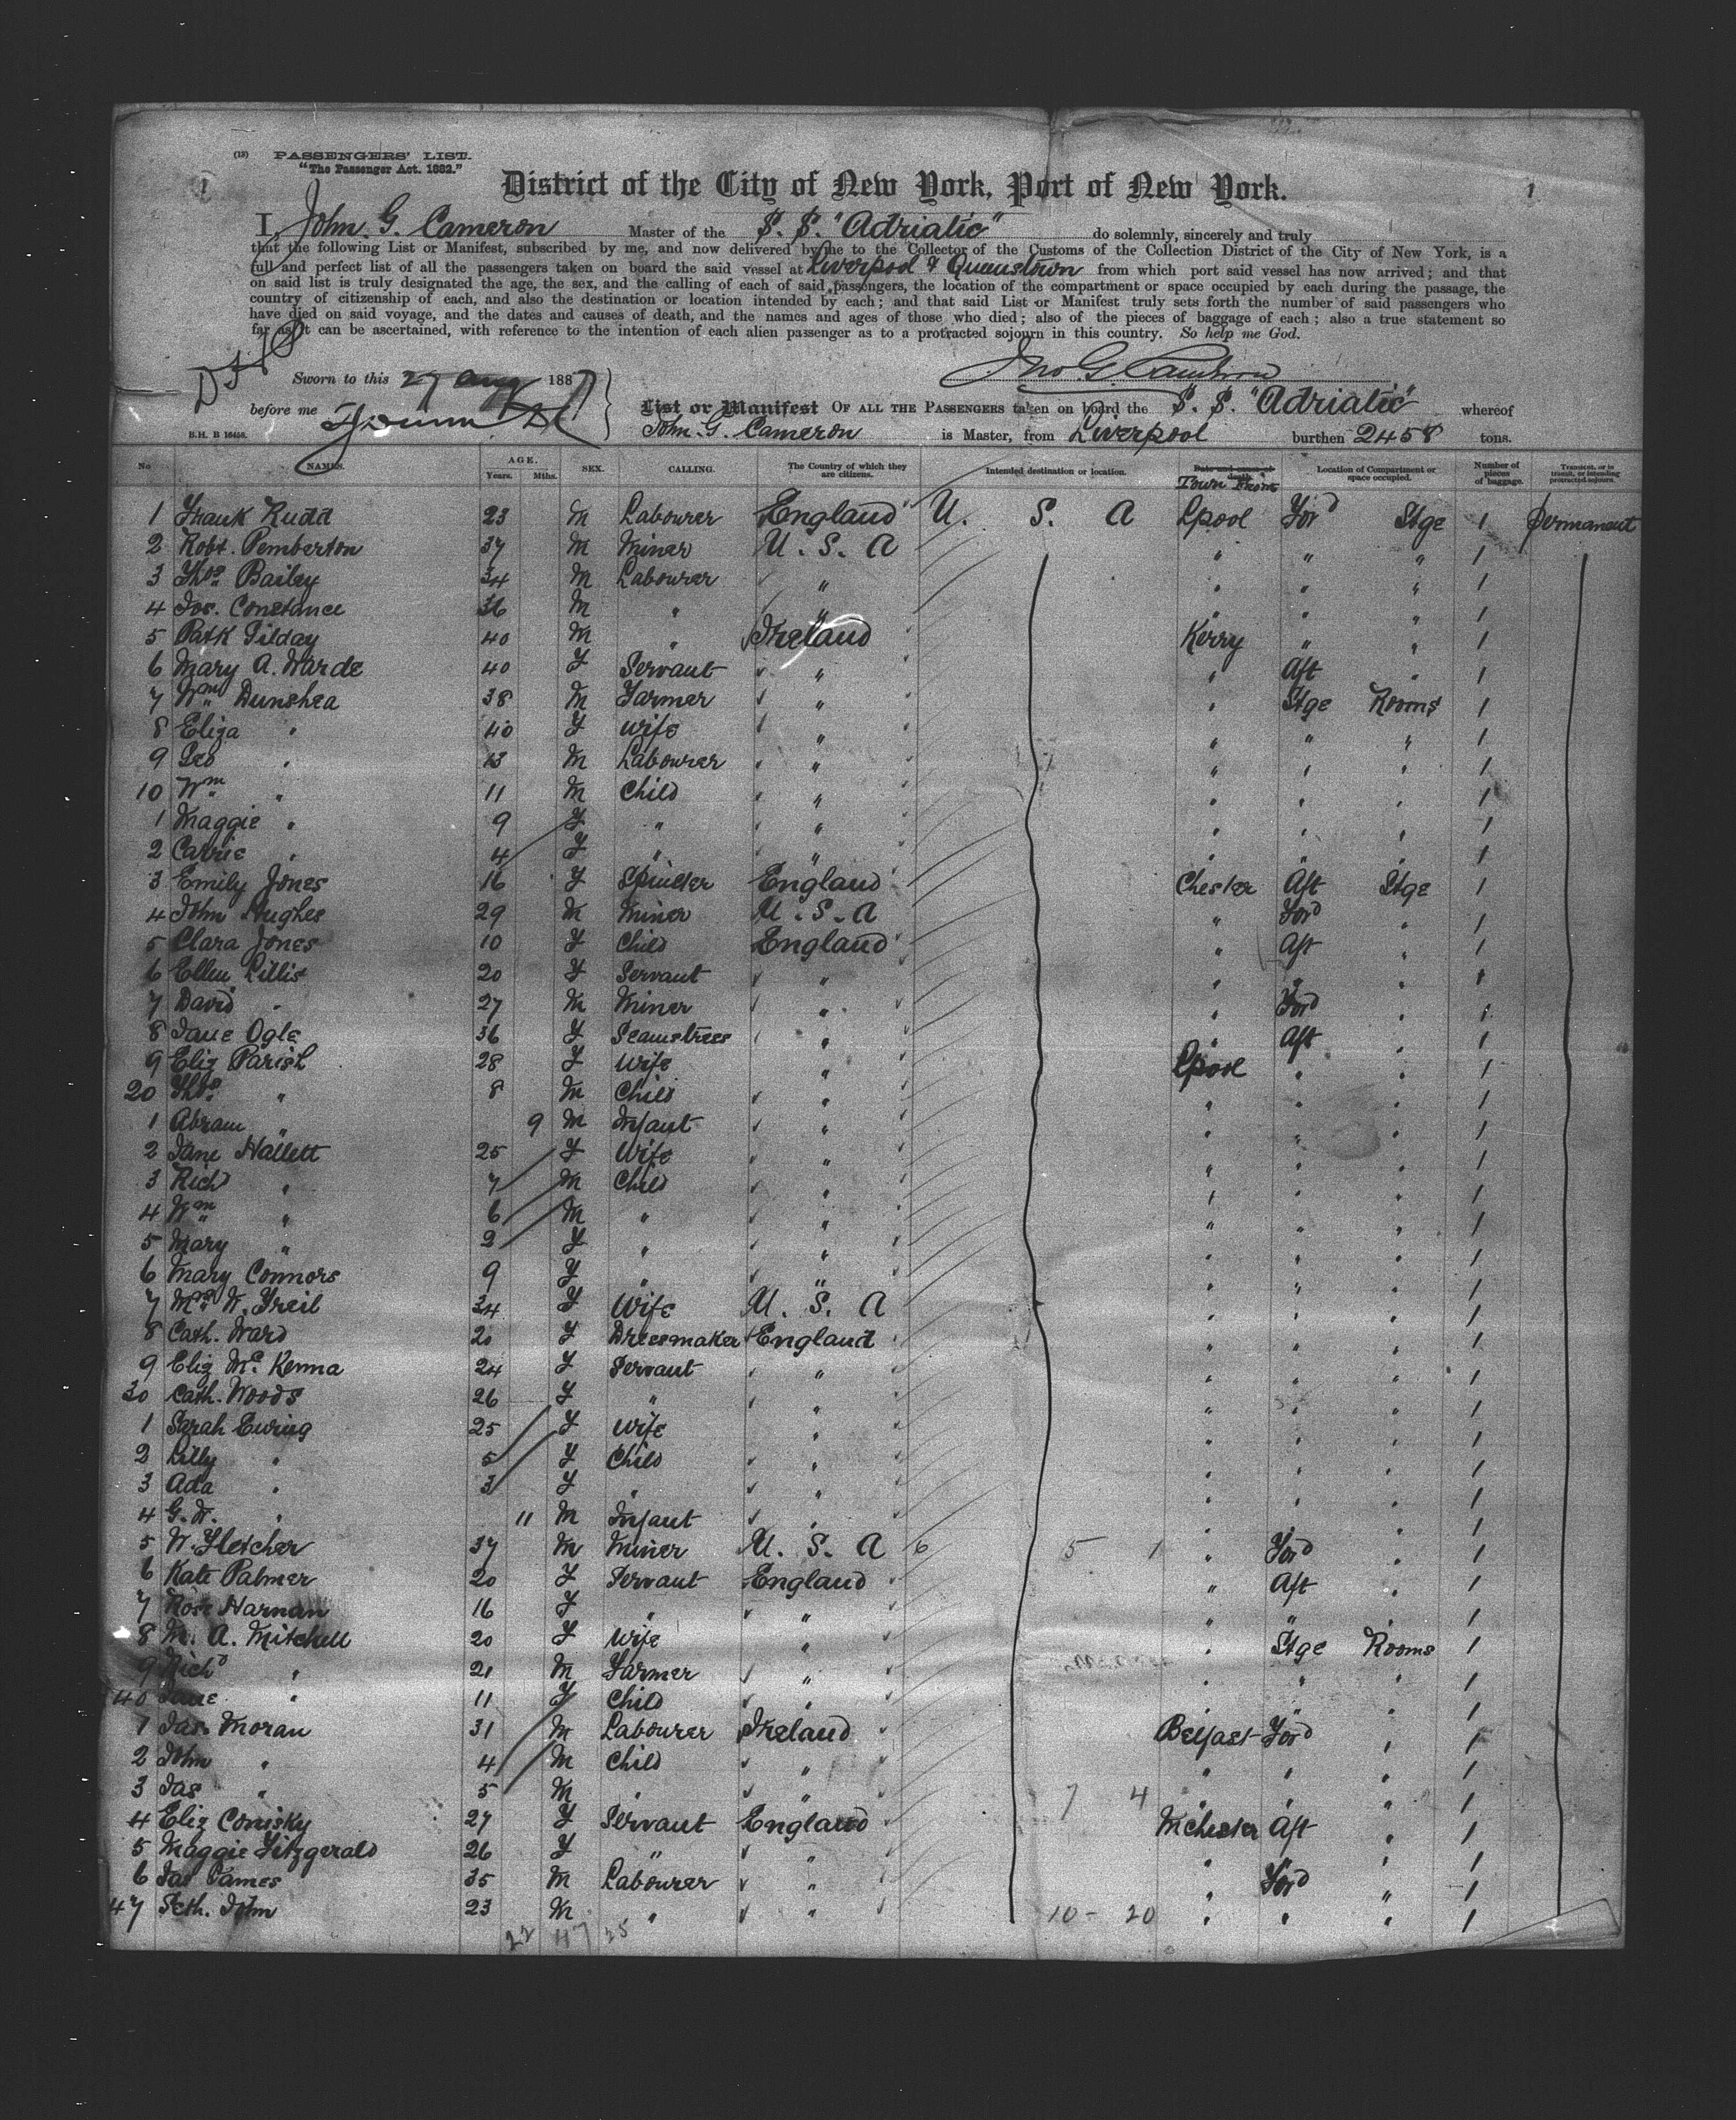 (13) PASSENGERS' LIST.
"The Passenger Act. 1882."
1 District of the City of New York, Port of New York. 1
I, John. G. Cameron Master of the S. S. "Adriatic" do solemnly, sincerely and truly
that the following List or Manifest, subscribed by me, and now delivered by me to the Collector of the Customs of the Collection District of the City of New York, is a
full and perfect list of all the passengers taken on board the said vessel at Liverpool & Queenstown from which port said vessel has now arrived; and that
on said list is truly designated the age, the sex, and the calling of each of said passengers, the location of the compartment or space occupied by each during the passage, the
country of citizenship of each, and also the destination or location intended by each; and that said List or Manifest truly sets forth the number of said passengers who
have died on said voyage, and the dates and causes of death, and the names and ages of those who died; also of the pieces of baggage of each; also a true statement so
far as it can be ascertained, with reference to the intention of each alien passenger as to a protracted sojourn in this country. So help me God.
Jno G Cameron
Sworn to this 27 Aug 1887
before me
List or Manifest OF ALL THE PASSENGERS taken on board the S. S. "Adriatic" whereof
B.H. B 16458. John. G. Cameron is Master, from Liverpool burthen 2458 tons.
No NAMES. AGE. Years. Mths. SEX. CALLING. The Country of which they are citizens. Intended destination or location. Date and cause of death. Town From Location of Compartment or space occupied. Number of pieces of baggage. Transient, or in transit, or intending protracted sojourn.
1 Frank Rudd 23 M Labourer England U. S. A Lpool For'd Stge 1 permanent
2 Robt. Pemberton 37 M Miner U. S. A " " " 1
3 Thos Bailey 34 M Labourer " " " " 1
4 Jos. Constance 36 M " " " " " 1
5 Patk Gilday 40 M " Ireland Kerry " " 1
6 Mary A. Warde 40 F Servant " " Aft " 1
7 Wm Dunshea 38 M Farmer " " Stge Rooms 1
8 Eliza " 40 F Wife " " " " 1
9 Geo " 13 M Labourer " " " " 1
10 Wm " 11 M Child " " " " 1
1 Maggie " 9 F " " " " " 1
2 Carrie " 4 F " " " " " 1
3 Emily Jones 16 F Spinster England Chester Aft Stge 1
4 John Hughes 29 M Miner U. S. A " For'd " 1
5 Clara Jones 10 F Child England " Aft " 1
6 Ellen Lillis 20 F Servant " " " " 1
7 David " 27 M Miner " " For'd " 1
8 Jane Ogle 36 F Seamstress " " Aft " 1
9 Eliz Parish 28 F Wife " Lpool " " 1
20 Thos " 8 M Child " " " " 1
1 Abram " 9 M Infant " " " " 1
2 Jane Hallett 25 F Wife " " " " 1
3 Richd " 7 M Child " " " " 1
4 Wm " 6 M " " " " " 1
5 Mary " 2 F " " " " " 1
6 Mary Connors 9 F " " " " " 1
7 Mrs W. Freil 34 F Wife U. S. A " " " 1
8 Cath. Ward 20 F Dressmaker England " " " 1
9 Eliz Mc Kenna 24 F Servant " " " " 1
30 Cath. Woods 26 F " " " " " 1
1 Sarah Ewing 25 F Wife " " " " 1
2 Lilly " 5 F Child " " " " 1
3 Ada " 3 F " " " " " 1
4 G. W. " 11 M Infant " " " " 1
5 W. Fletcher 37 M Miner U. S. A 6 5 1 " For'd " 1
6 Kate Palmer 20 F Servant England " Aft " 1
7 Rose Harnan 16 F " " " " " 1
8 M. A. Mitchell 20 F Wife " " Stge Rooms 1
9 Richd " 21 M Farmer " " " " 1
40 Jane " 11 F Child " " " " 1
1 Jas. Moran 31 M Labourer Ireland Belfast For'd " 1
2 John " 4 M Child " " " " 1
3 Jas " 5 M " " 7 4 " " " 1
4 Eliz Comisky 27 F Servant England Mchester Aft " 1
5 Maggie Fitzgerald 26 F " " " " " 1
6 Jas James 35 M Labourer " " For'd " 1
47 Seth. John 23 M " " 10 - 20 " " " 1
22 47 25